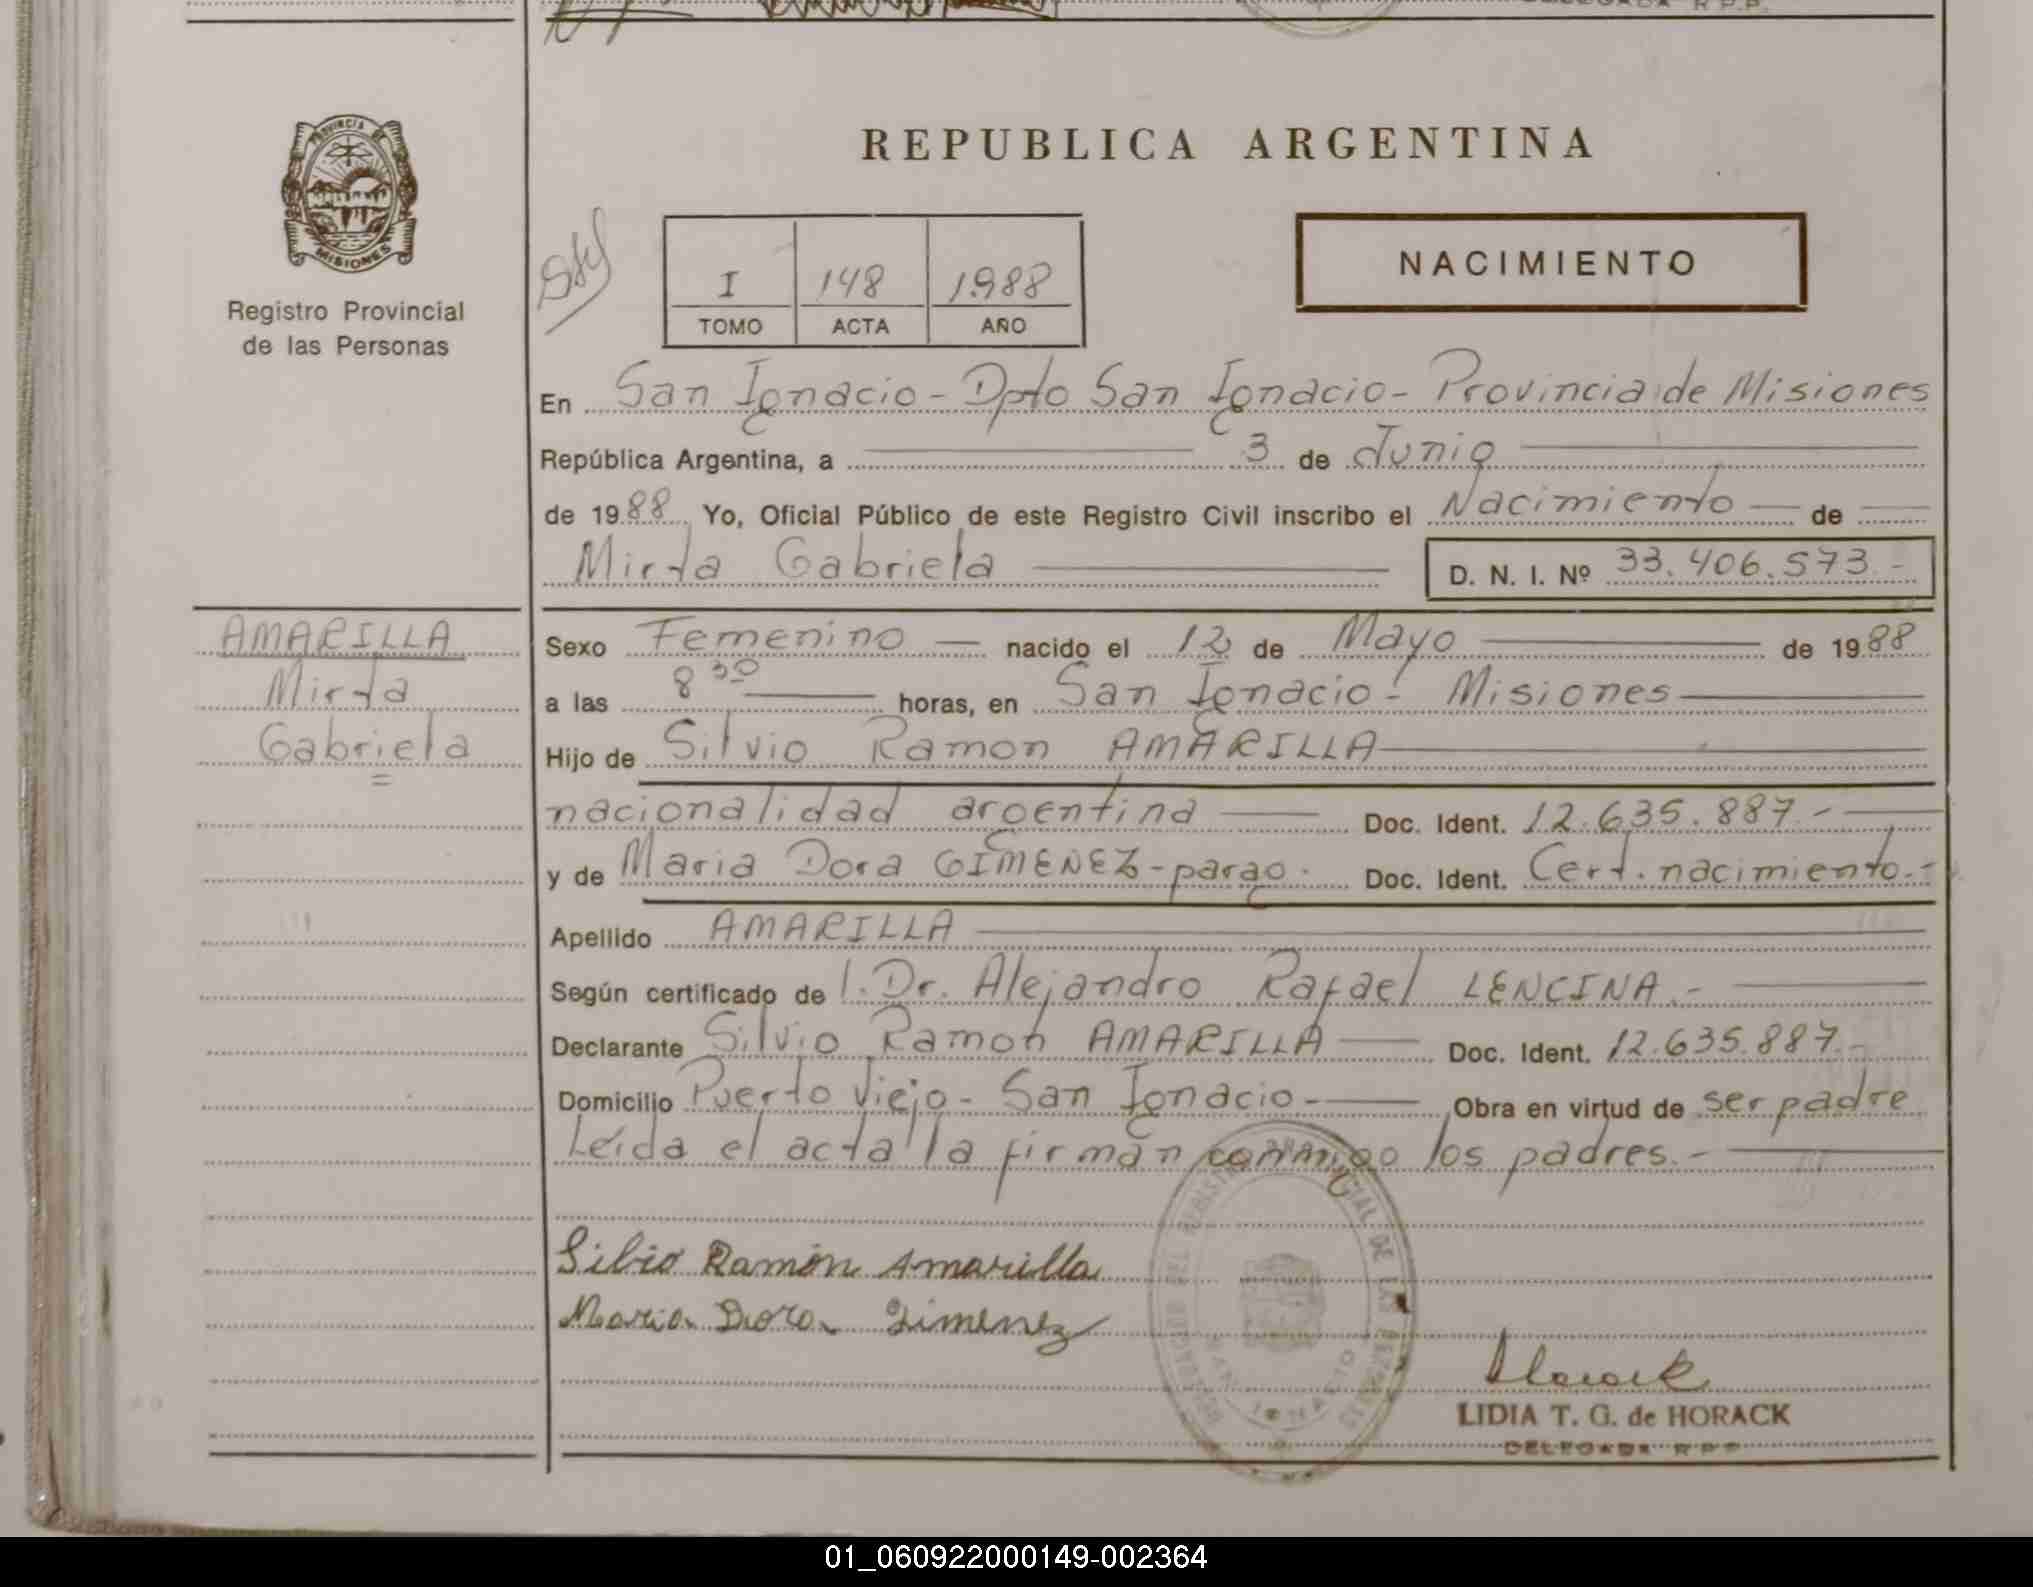 PROVINCIA DE
MISIONES
Registro Provincial
de las Personas
REPUBLICA ARGENTINA
I 148 1988
TOMO ACTA AÑO
NACIMIENTO
En San Ignacio - Dpto San Ignacio - Provincia de Misiones
República Argentina, a 3 de Junio
de 1988 Yo, Oficial Público de este Registro Civil inscribo el Nacimiento de
Mirta Gabriela D. N. I. Nº 33.406.573.-
AMARILLA
Mirta
Gabriela
Sexo Femenino nacido el 12 de Mayo de 1988
a las 8 30 horas, en San Ignacio - Misiones
Hijo de Silvio Ramon AMARILLA
nacionalidad argentina Doc. Ident. 12.635.887.-
y de Maria Dora GIMENEZ - parag. Doc. Ident. Cert. nacimiento.-
Apellido AMARILLA
Según certificado de l. Dr. Alejandro Rafael LENCINA.-
Declarante Silvio Ramon AMARILLA Doc. Ident. 12.635.887.-
Domicilio Puerto Viejo - San Ignacio - Obra en virtud de ser padre
Leída el acta la firman conmigo los padres.-
Silbio Ramón Amarilla
Maria Dora Gimenez
Horack
LIDIA T. G. de HORACK
DELEGADA R P P
01_060922000149-002364